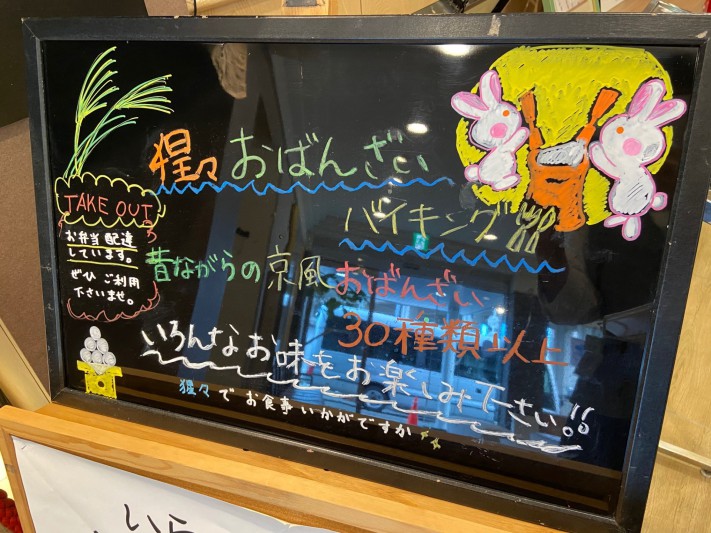 猩々 おばんざい
バイキング
昔ながらの京風おばんざい
30種類以上
いろんなお味をお楽しみ下さい!!
猩々でお食事いかがですか
TAKE OUT
お弁当配達
しています。
ぜひご利用
下さいませ。
いら